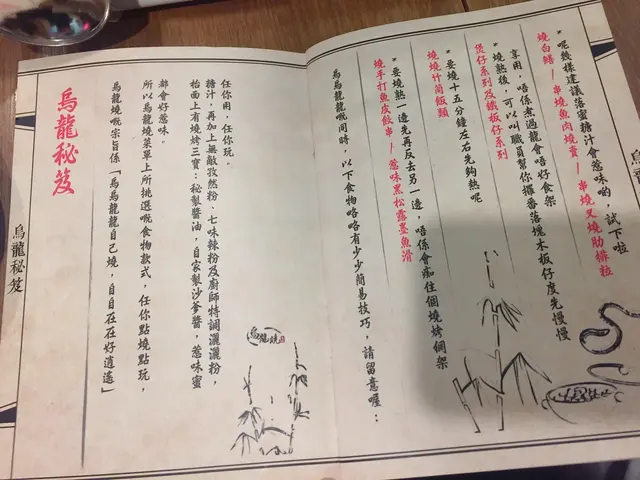 烏龍秘笈
烏龍秘笈
烏龍燒嘅宗旨係「烏烏龍龍自己燒，自自在在好逍遙」
所以烏龍燒菜單上所挑選嘅食物款式，任你點燒點玩，
都會好惹味。
枱面上有燒烤三寶：秘製醬油，自家製沙爹醬，惹味蜜
糖汁，再加上無敵孜然粉，七味辣粉及廚師特調灑灑粉，
任你用，任你玩。
烏龍燒
烏烏龍龍嘅同時，以下食物咯咯有少少簡易技巧，請留意喔：
燒手打魚皮餃串/惹味黑松露墨魚滑
*要燒熱一邊先再反去另一邊，唔係會痴住個燒烤網架
燒燒竹筒飯類
*要燒十五分鐘左右先夠熱呢
煲仔系列及鐵板仔系列
*燒熱後，可以叫職員幫你擺番落塊木板仔度先慢慢
享用，唔係煮過龍會唔好食架
燒白鱔/串燒魚肉燒賣/串燒叉燒肋排粒
*呢幾樣建議落蜜糖汁會惹味啲，試下啦